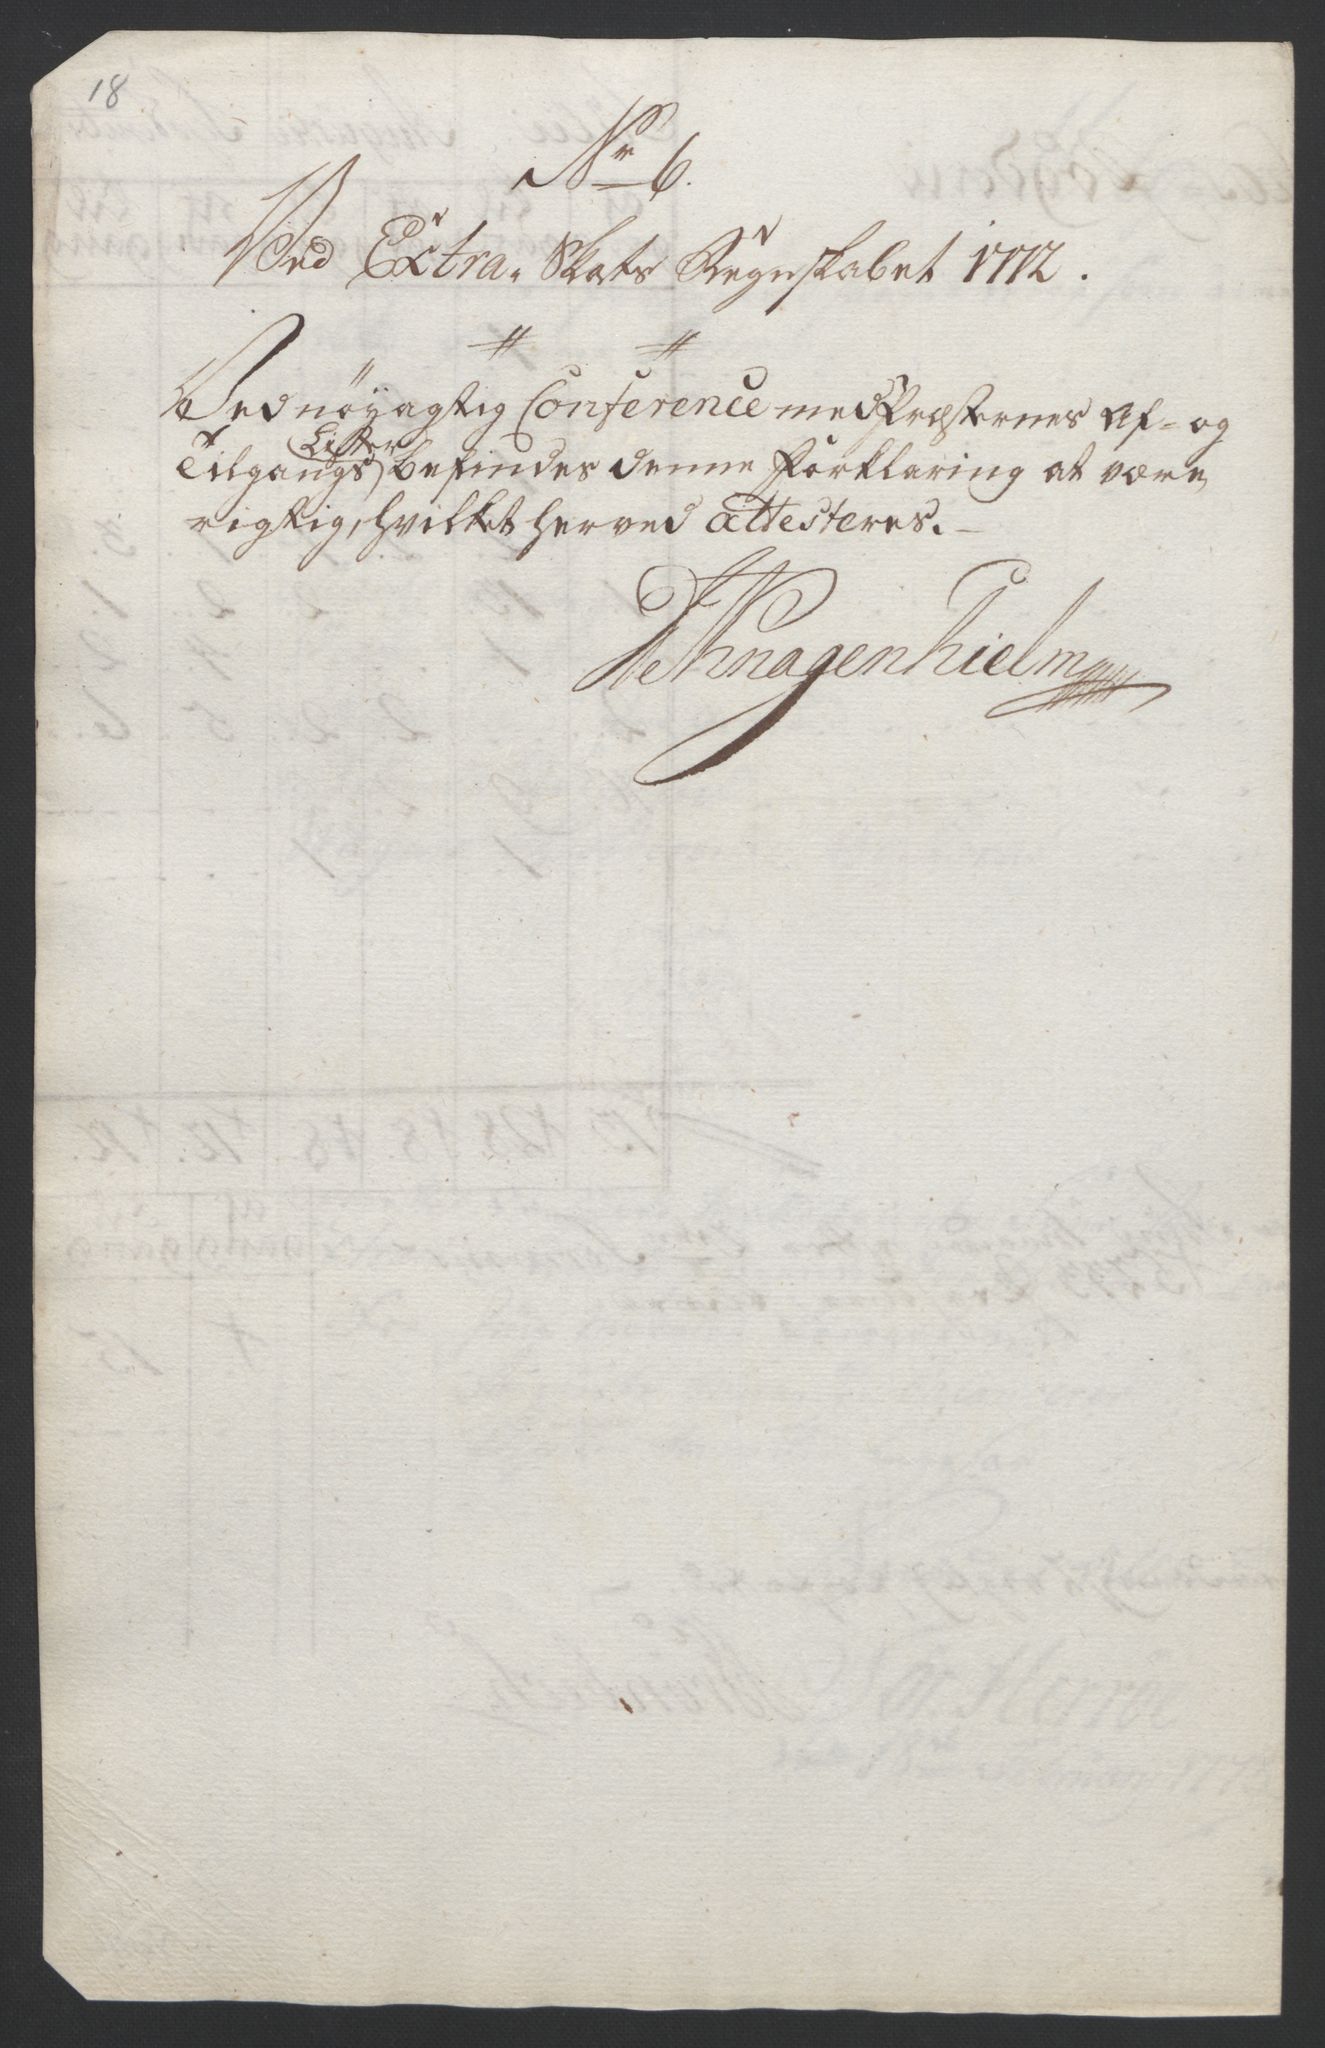 18
Nr 6.
Ved Extra-Skats Regnskabet 1772.
Ved nöyagtig Conference med Præsternes Af- og
Tilgangs Lister befindes denne Forklaring at være
rigtig, hvilket herved attesteres.
Knagenhielm